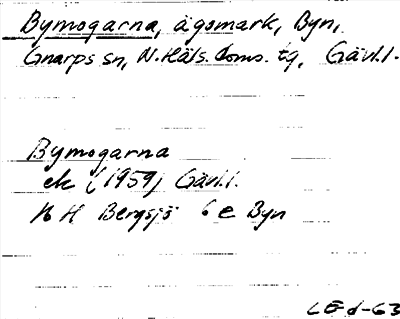 Bymogarna, ägomark, Byn,
Gnarps sn, N. Häls. doms. tg, Gävl. l.
Bymogarna
ek (1959) Gävl. l.
16 H Bergsjö 6 e Byn
LE d-63